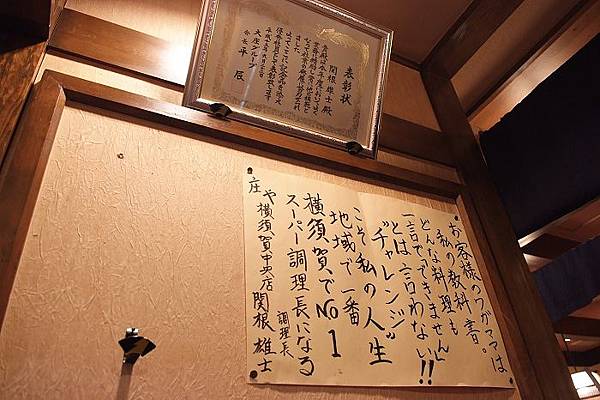 表彰状
関根雄士殿
大庄グループ
会長 平 辰
お客様のワガママは
私の教科書。
どんな料理も
一言で「できません」
とは、言わない!!
"チャレンジ"
こそ私の人生
地域で一番
横須賀でNo1
スーパー調理長になる
調理長
庄や横須賀中央店 関根雄士